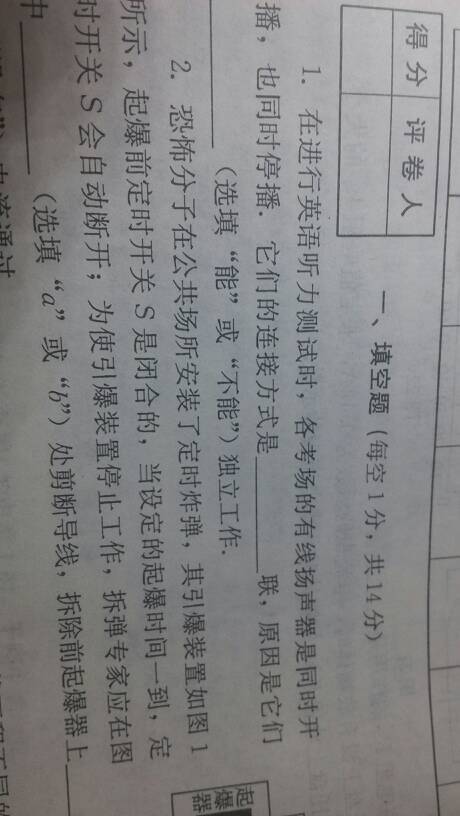 得分 评卷人
一、填空题（每空1分，共14分）
1. 在进行英语听力测试时，各考场的有线扬声器是同时开
播，也同时停播．它们的连接方式是______联，原因是它们
______（选填“能”或“不能”）独立工作．
2. 恐怖分子在公共场所安装了定时炸弹，其引爆装置如图1
所示，起爆前定时开关S是闭合的，当设定的起爆时间一到，定
时开关S会自动断开；为使引爆装置停止工作，拆弹专家应在图
中______（选填“a”或“b”）处剪断导线，拆除前起爆器上______
电流通过
起爆器